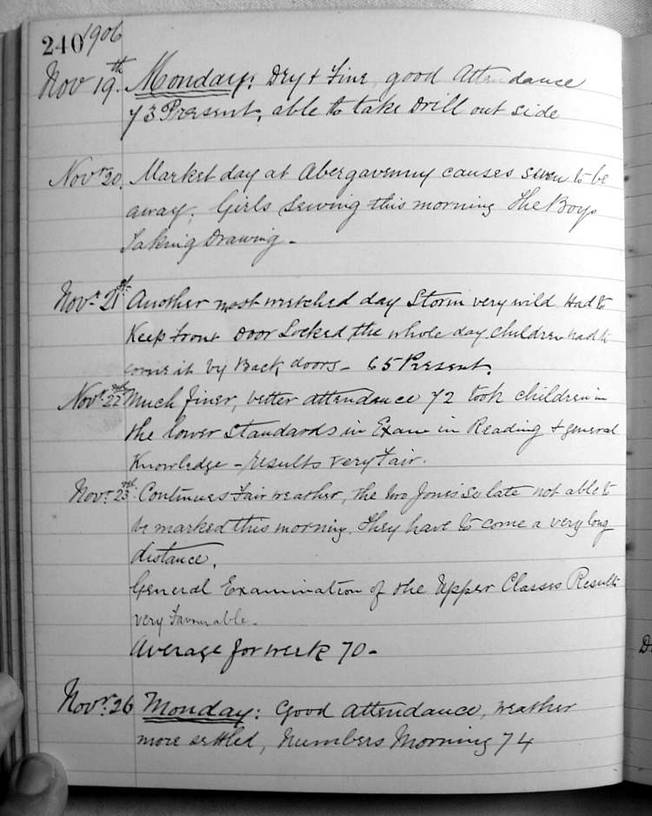 240 1906
Nov 19th. Monday: Dry & Fine, good Attendance
73 Present, able to take Drill out side
Novr 20. Market day at Abergavenny causes seven to be
away. Girls Sewing this morning The Boys
Taking Drawing -
Novr 21st Another most wretched day Storm very wild Had to
Keep Front Door Locked the whole day children had to
come in by Back doors - 65 Present.
Novr 22nd Much finer, better attendance 72 took children in
the lower Standards in Exam in Reading & general
Knowledge - results very fair.
Novr 23rd Continues Fair weather, the two Jones' so late not able to
be marked this morning. They have to come a very long
distance.
General Examination of the Upper Classes Results
very Favourable.
Average for week 70 -
Novr. 26 Monday: Good Attendance, weather
more settled, Numbers Morning 74